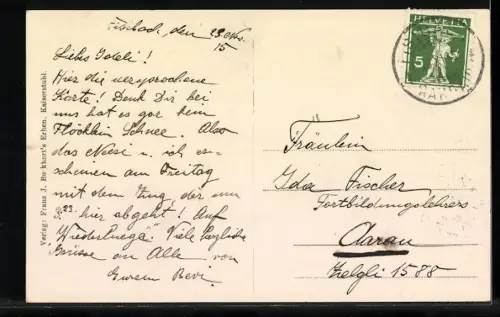 Fisibach, den 23. Nov.
15
Liebs Ideli!
Hier die versprochene
Karte! Denk Dir bei
uns hat es gar kein
Flöcklein Schnee. Also
das Neesi u. ich er-
scheinen am Freitag
mit dem Zug, der um
hier abgeht! Auf
"Wiederluege". Viele herzliche
Grüsse an Alle von
Eurem Bevi.
Verlag: Franz J. Burkhart's Erben, Kaiserstuhl.
HELVETIA
5
Fräulein
Ida Fischer
Fortbildungslehrers
Aarau
Zelgli 1588